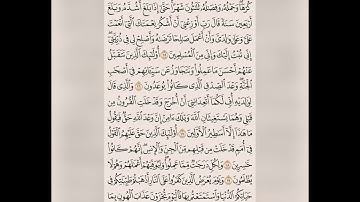 كُرْهًا وَحَمْلُهُ وَفِصَٰلُهُ ثَلَٰثُونَ شَهْرًا حَتَّىٰٓ إِذَا بَلَغَ أَشُدَّهُ وَبَلَغَ
أَرْبَعِينَ سَنَةً قَالَ رَبِّ أَوْزِعْنِىٓ أَنْ أَشْكُرَ نِعْمَتَكَ ٱلَّتِىٓ أَنْعَمْتَ
عَلَىَّ وَعَلَىٰ وَٰلِدَىَّ وَأَنْ أَعْمَلَ صَٰلِحًا تَرْضَىٰهُ وَأَصْلِحْ لِى فِى ذُرِّيَّتِىٓ
إِنِّى تُبْتُ إِلَيْكَ وَإِنِّى مِنَ ٱلْمُسْلِمِينَ ١٥ أُو۟لَٰٓئِكَ ٱلَّذِينَ نَتَقَبَّلُ
عَنْهُمْ أَحْسَنَ مَا عَمِلُوا۟ وَنَتَجَاوَزُ عَن سَيِّـَٔاتِهِمْ فِىٓ أَصْحَٰبِ
ٱلْجَنَّةِ وَعْدَ ٱلصِّدْقِ ٱلَّذِى كَانُوا۟ يُوعَدُونَ ١٦ وَٱلَّذِى قَالَ
لِوَٰلِدَيْهِ أُفٍّ لَّكُمَآ أَتَعِدَانِنِىٓ أَنْ أُخْرَجَ وَقَدْ خَلَتِ ٱلْقُرُونُ مِن
قَبْلِى وَهُمَا يَسْتَغِيثَانِ ٱللَّهَ وَيْلَكَ ءَامِنْ إِنَّ وَعْدَ ٱللَّهِ حَقٌّ فَيَقُولُ
مَا هَٰذَآ إِلَّآ أَسَٰطِيرُ ٱلْأَوَّلِينَ ١٧ أُو۟لَٰٓئِكَ ٱلَّذِينَ حَقَّ عَلَيْهِمُ ٱلْقَوْلُ
فِىٓ أُمَمٍ قَدْ خَلَتْ مِن قَبْلِهِم مِّنَ ٱلْجِنِّ وَٱلْإِنسِ إِنَّهُمْ كَانُوا۟
خَٰسِرِينَ ١٨ وَلِكُلٍّ دَرَجَٰتٌ مِّمَّا عَمِلُوا۟ وَلِيُوَفِّيَهُمْ أَعْمَٰلَهُمْ وَهُمْ لَا
يُظْلَمُونَ ١٩ وَيَوْمَ يُعْرَضُ ٱلَّذِينَ كَفَرُوا۟ عَلَى ٱلنَّارِ أَذْهَبْتُمْ طَيِّبَٰتِكُمْ فِى
حَيَاتِكُمُ ٱلدُّنْيَا وَٱسْتَمْتَعْتُم بِهَا فَٱلْيَوْمَ تُجْزَوْنَ عَذَابَ ٱلْهُونِ بِمَا